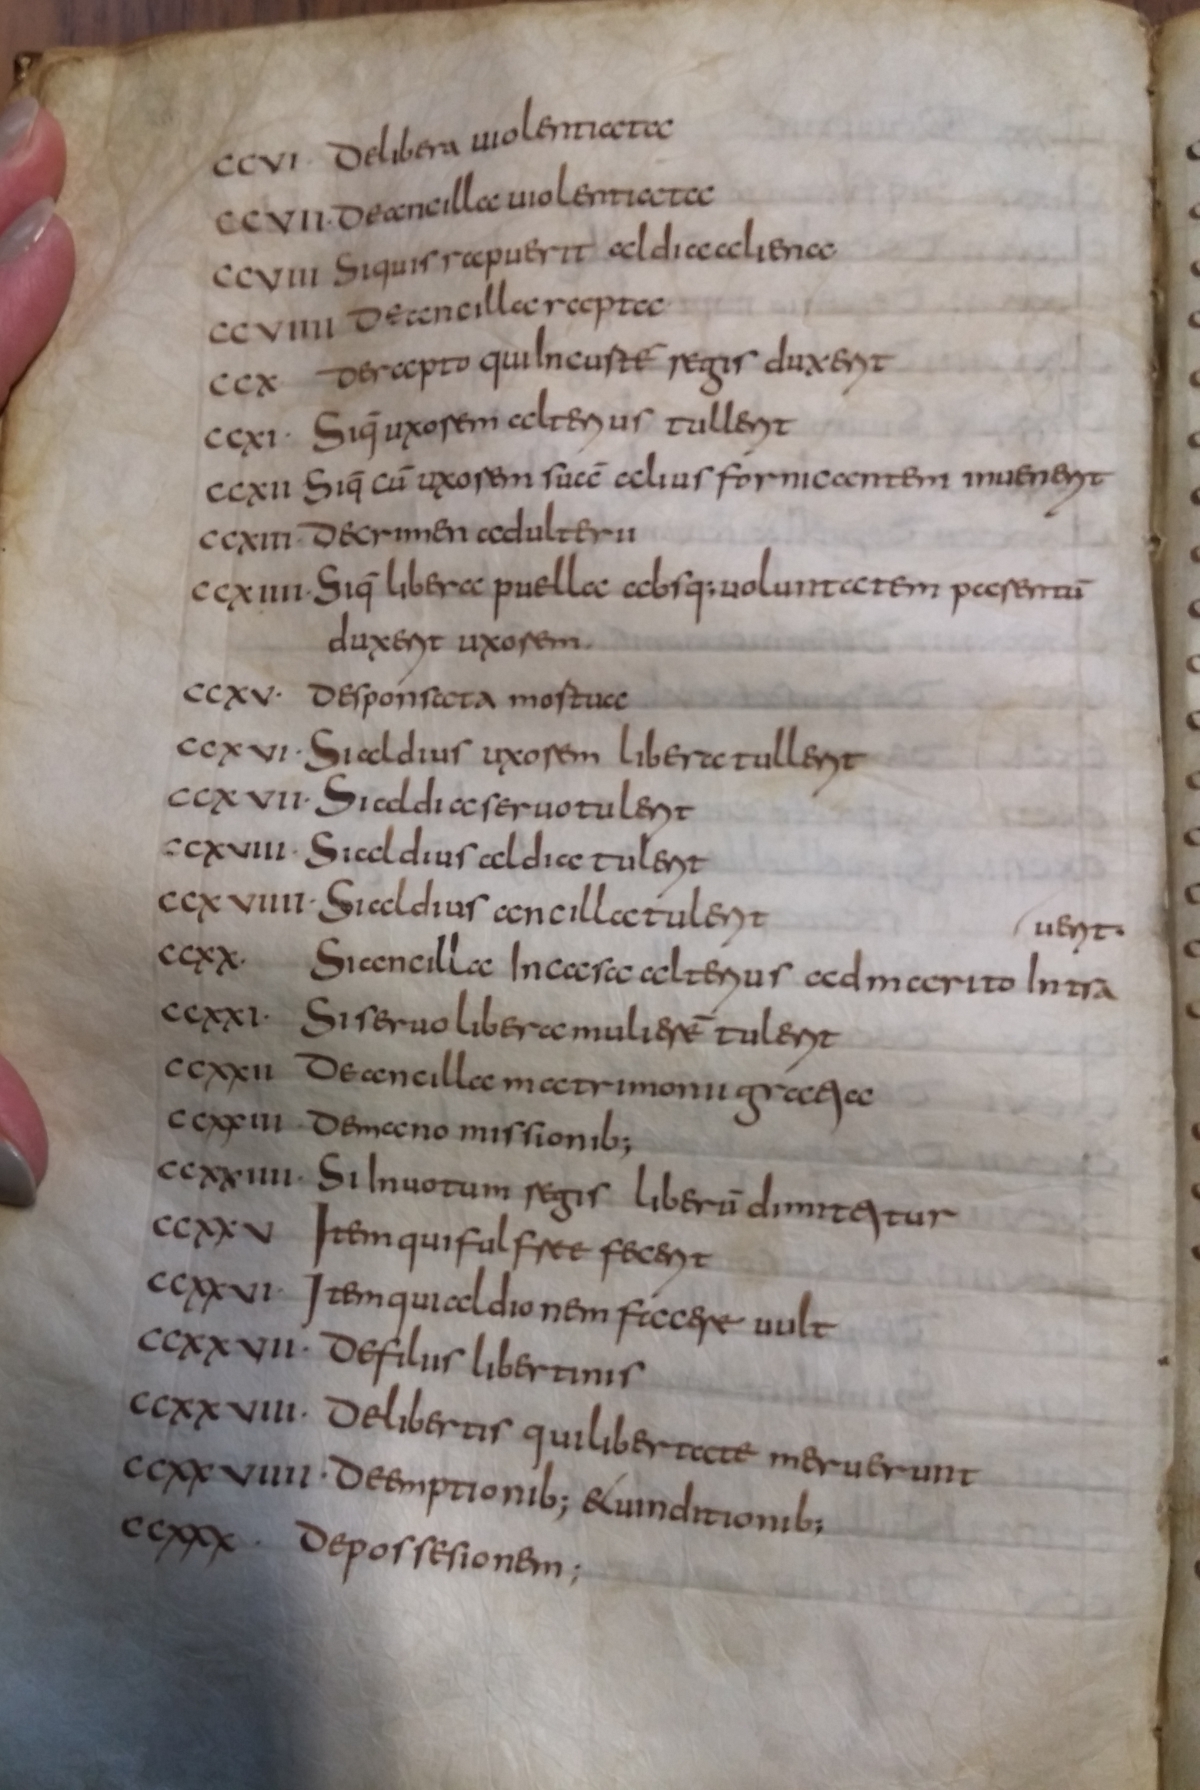 CCVI · Delibera uiolentiata
CCVII · Deancilla uiolentiata
CCVIII Siquis rapuerit aldia aliena
CCVIIII Deancilla rapta
CCX Derapto quiIncuste regis duxerit
CCXI · Siq̄ uxorem alterius tullerit
CCXII Siq̄ cū uxorem suā alius fornicantem inuenerit
CCXIII · Decrimen adulterii
CCXIIII · Siq̄ libera puella absq; uoluntatem parentū
duxerit uxorem
CCXV · Desponsata mortua
CCXVI · Sialdius uxorem libera tullerit
CCXVII · Sialdia seruo tulerit
CCXVIII · Sialdius aldia tulerit
CCXVIIII · Sialdius ancilla tulerit
uerit ·
CCXX · Siancilla Incasa alterius admarito Intra
CCXXI · Siseruo libera mulierē tulerit
CCXXII Deancilla matrimonii gratia
CCXXIII Demano missionib;
CCXXIIII · SiInuotum regis liberū dimitatur
CCXXV Item quifulfree fecerit
CCXXVI · Item quialdionem facere uult
CCXXVII · Defilus libertinis
CCXXVIII · Delibertis quilibertate meruerunt
CCXXVIIII · Deemptionib; &uinditionib;
CCXXX · Depossesionem;